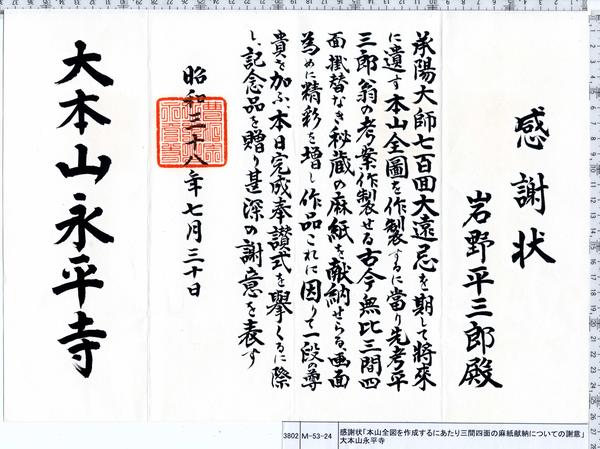 感謝状
岩野平三郎殿
承陽大師七百回大遠忌を期して將來
に遺す本山全圖を作製するに當り先考平
三郎翁の考案作製せる古今無比三間四
面掛替なき秘蔵の麻紙を献納せらる、画面
為めに精彩を増し作品これに因りて一段の尊
貴を加ふ、本日完成奉讃式を擧くるに際
し、記念品を贈り甚深の謝意を表す
昭和三十八年七月三十日
大本山永平寺
3802 M-53-24 感謝状「本山全図を作成するにあたり三間四面の麻紙献納についての謝意」
大本山永平寺